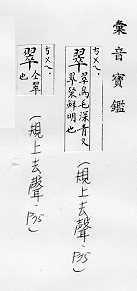 彙音寶鑑
ㄘㄨㄟ:
翠 翠鳥毛深青又
翠榮鮮明也
(規上去聲.P35)
ㄘㄨㄟ:
翆 仝翠
也
(規上去聲.P35)